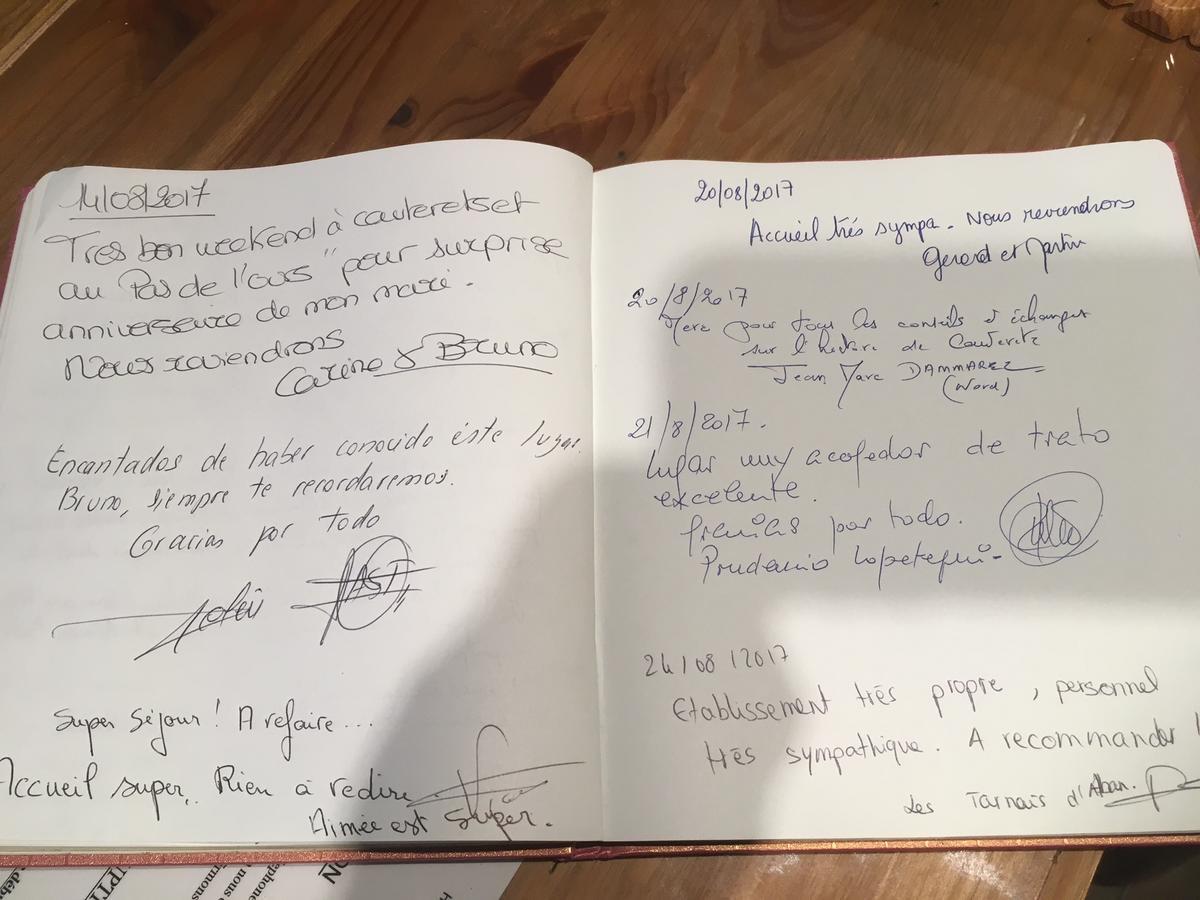 14/08/2017
Tres bon weekend à cauteretset
au Pas de l'ours " pour surprise
anniversaire de mon mari.
Nous reviendrons
Carine & Bruno
Encantados de haber conocido éste lugar.
Bruno, siempre te recordaremos.
Gracias por todo
Super Séjour ! A refaire...
Accueil super.. Rien à redire
Aimée est Super.
20/08/2017
Accueil trés sympa. Nous reviendrons
Gerard et Martin
20/8/2017
Merci pour tous les conseils et échanges
sur l'histoire de Cauteretz
Jean Marc DAMMAREZ
(Nord)
21/8/2017.
lugar muy acojedor de trato
excelente.
Gracias por todo.
Prudencio Lopetegui-
24/08/2017
Etablissement trés propre, personnel
trés sympathique. A recommander !
Les Tarnais d'Alban.
ephone
nous
rmons